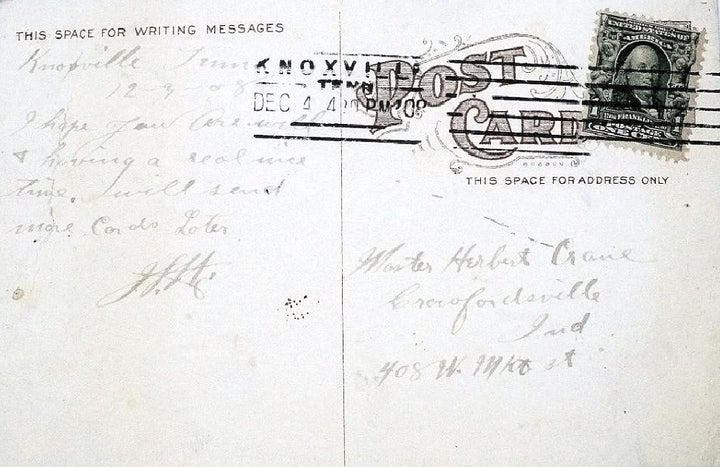 THIS SPACE FOR WRITING MESSAGES
Knoxville, Tenn
12-3-08
I hope you are well
& having a real nice
time. I will send
more Cards Later
KNOXVILLE
TENN.
DEC 4 4 PM 1908
POST
CARD
UNITED STATES OF AMERICA
FRANKLIN
POSTAGE
ONE CENT
THIS SPACE FOR ADDRESS ONLY
Master Herbert Crane
Crawfordsville
Ind
408 W. Mkt st